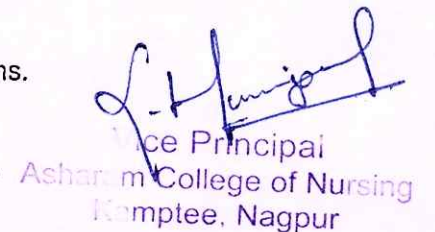 ns.
Vice Principal
College of Nursing
Kamptee, Nagpur